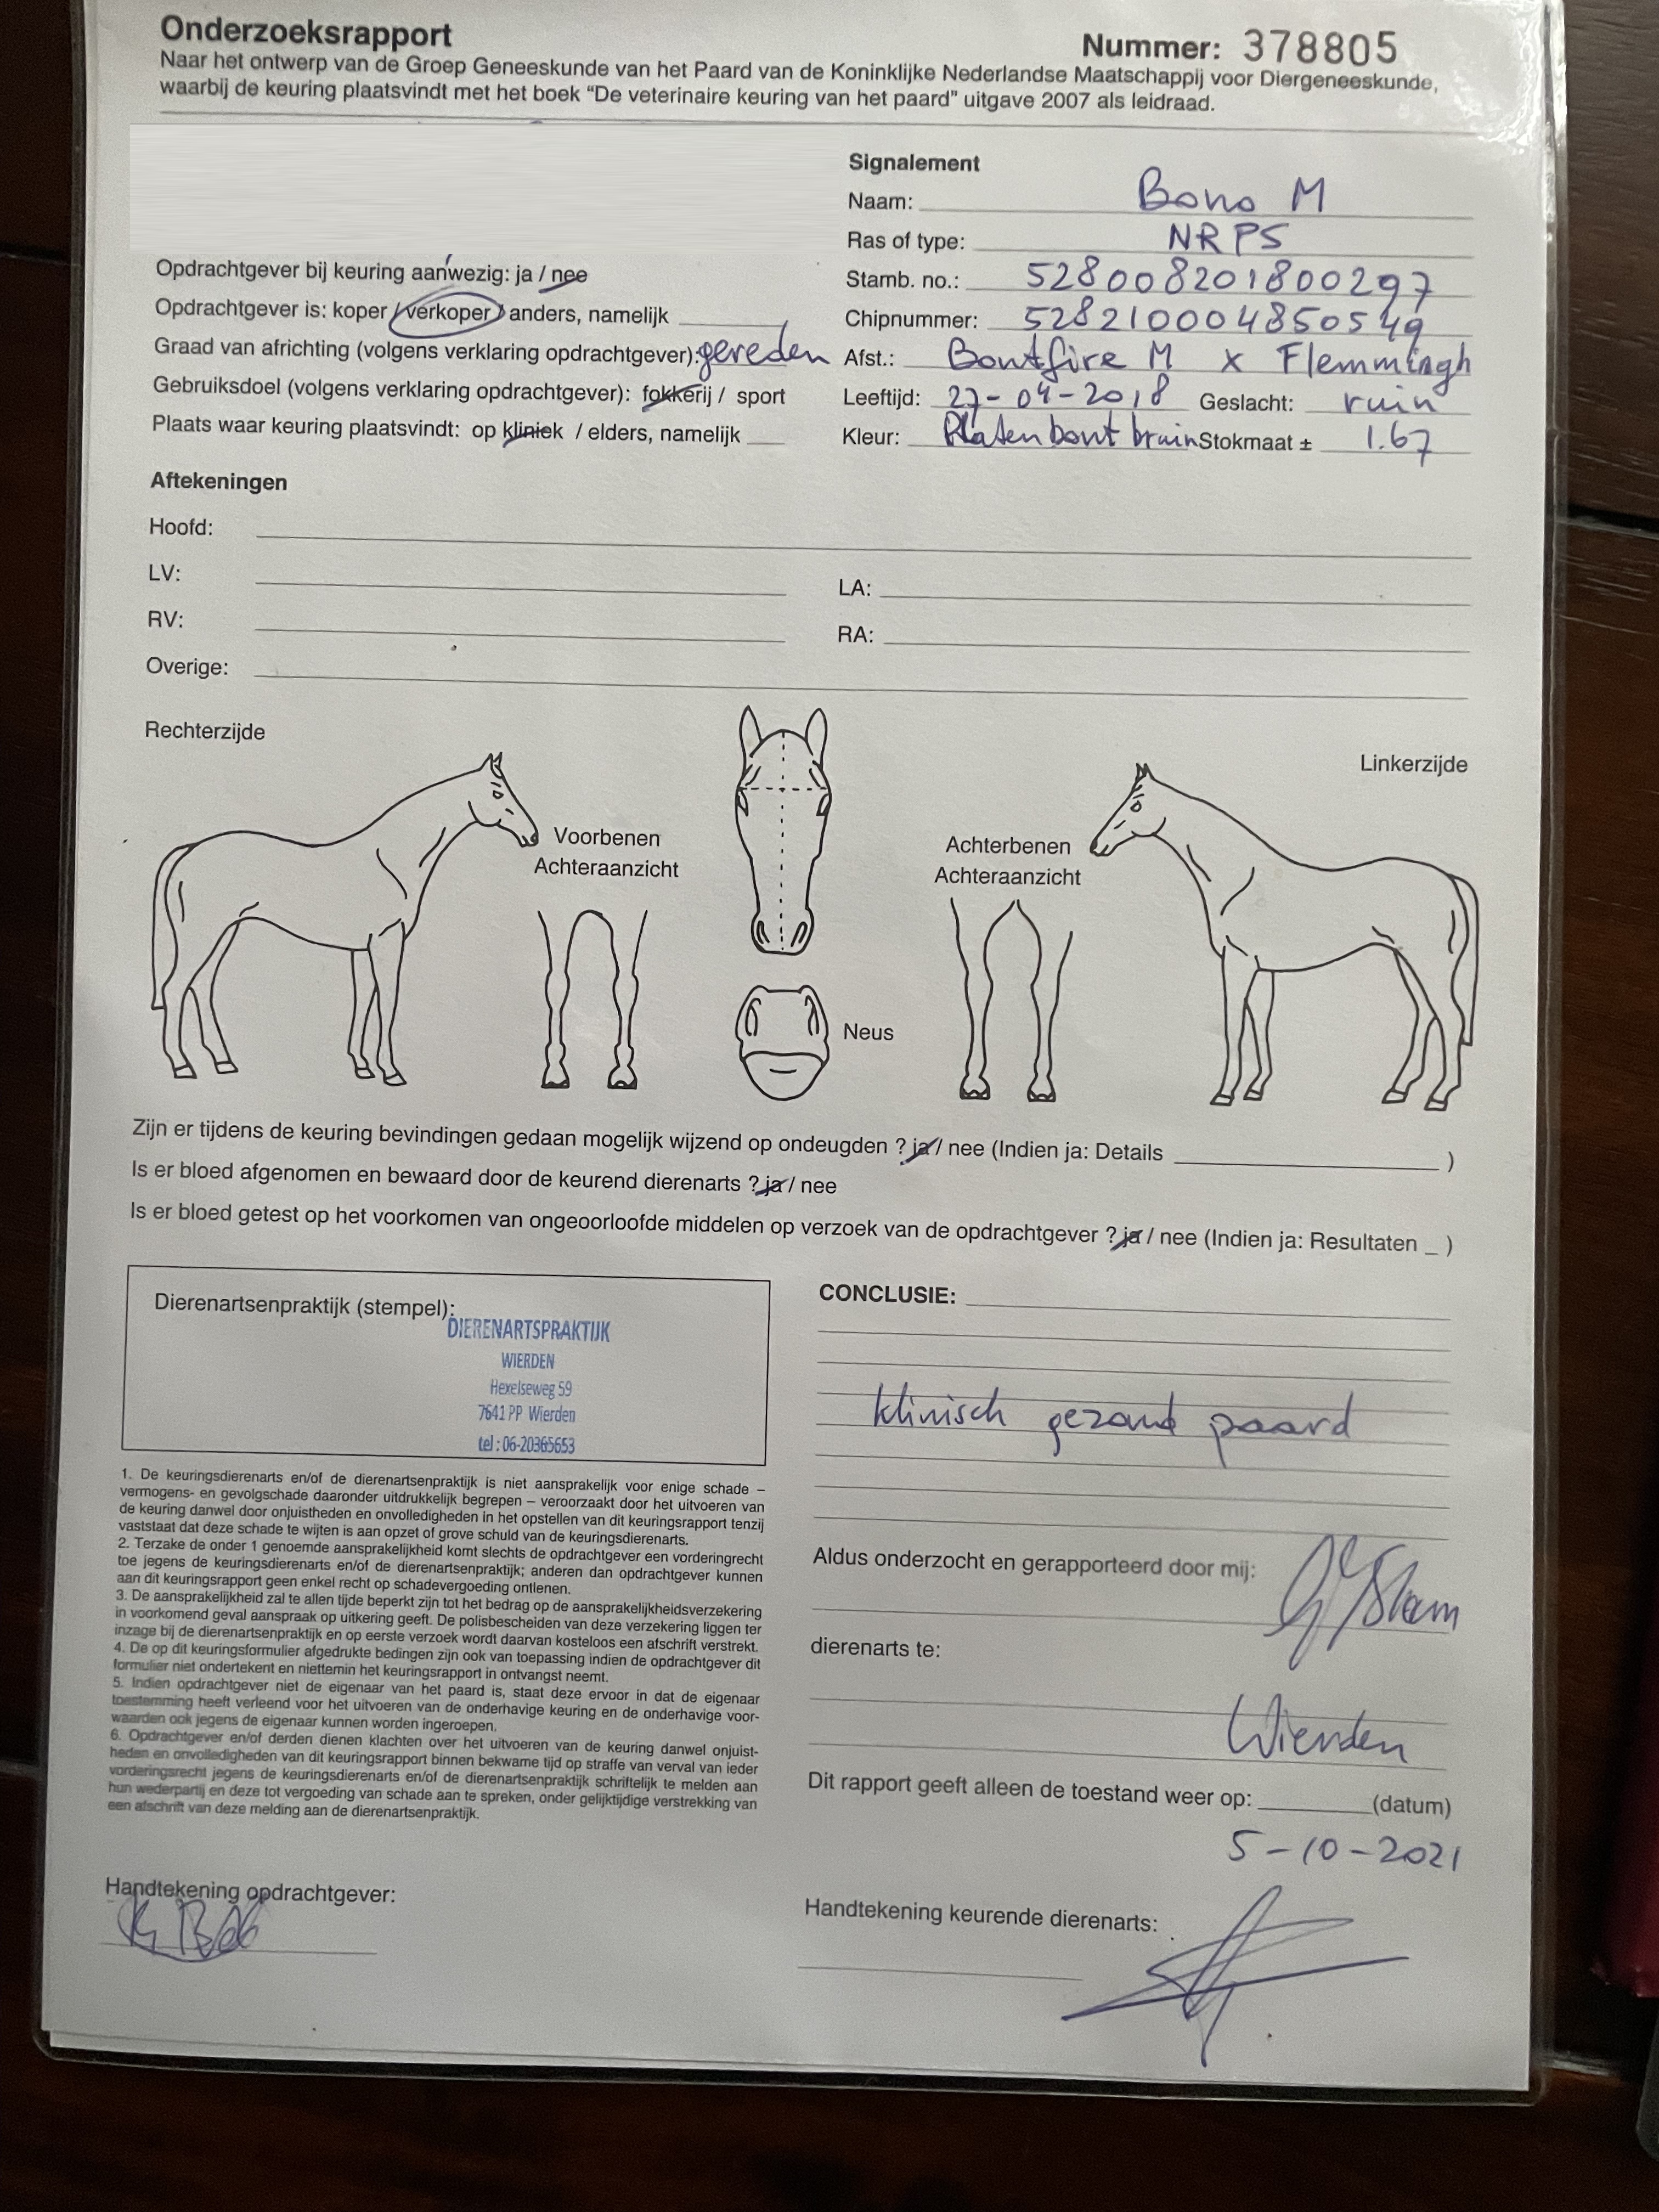 Onderzoeksrapport
Nummer: 378805
Naar het ontwerp van de Groep Geneeskunde van het Paard van de Koninklijke Nederlandse Maatschappij voor Diergeneeskunde,
waarbij de keuring plaatsvindt met het boek “De veterinaire keuring van het paard” uitgave 2007 als leidraad.
Opdrachtgever bij keuring aanwezig: ja / nee
Opdrachtgever is: koper / verkoper / anders, namelijk
Graad van africhting (volgens verklaring opdrachtgever): gereden
Gebruiksdoel (volgens verklaring opdrachtgever): fokkerij / sport
Plaats waar keuring plaatsvindt: op kliniek / elders, namelijk
Signalement
Naam: Bono M
Ras of type: NRPS
Stamb. no.: 528008201800297
Chipnummer: 528210004850549
Afst.: Bontfire M x Flemmingh
Leeftijd: 27-04-2018 Geslacht: ruin
Kleur: Platenbont bruin Stokmaat ± 1.67
Aftekeningen
Hoofd:
LV:
LA:
RV:
RA:
Overige:
Rechterzijde
Linkerzijde
Voorbenen
Achteraanzicht
Achterbenen
Achteraanzicht
Neus
Zijn er tijdens de keuring bevindingen gedaan mogelijk wijzend op ondeugden ? ja / nee (Indien ja: Details )
Is er bloed afgenomen en bewaard door de keurend dierenarts ? ja / nee
Is er bloed getest op het voorkomen van ongeoorloofde middelen op verzoek van de opdrachtgever ? ja / nee (Indien ja: Resultaten _ )
Dierenartsenpraktijk (stempel):
DIERENARTSPRAKTIJK
WIERDEN
Hexelseweg 59
7641 PP Wierden
tel : 06-20365653
1. De keuringsdierenarts en/of de dierenartsenpraktijk is niet aansprakelijk voor enige schade –
vermogens- en gevolgschade daaronder uitdrukkelijk begrepen – veroorzaakt door het uitvoeren van
de keuring danwel door onjuistheden en onvolledigheden in het opstellen van dit keuringsrapport tenzij
vaststaat dat deze schade te wijten is aan opzet of grove schuld van de keuringsdierenarts.
2. Terzake de onder 1 genoemde aansprakelijkheid komt slechts de opdrachtgever een vorderingrecht
toe jegens de keuringsdierenarts en/of de dierenartsenpraktijk; anderen dan opdrachtgever kunnen
aan dit keuringsrapport geen enkel recht op schadevergoeding ontlenen.
3. De aansprakelijkheid zal te allen tijde beperkt zijn tot het bedrag op de aansprakelijkheidsverzekering
in voorkomend geval aanspraak op uitkering geeft. De polisbescheiden van deze verzekering liggen ter
inzage bij de dierenartsenpraktijk en op eerste verzoek wordt daarvan kosteloos een afschrift verstrekt.
4. De op dit keuringsformulier afgedrukte bedingen zijn ook van toepassing indien de opdrachtgever dit
formulier niet ondertekent en niettemin het keuringsrapport in ontvangst neemt.
5. Indien opdrachtgever niet de eigenaar van het paard is, staat deze ervoor in dat de eigenaar
toestemming heeft verleend voor het uitvoeren van de onderhavige keuring en de onderhavige voor-
waarden ook jegens de eigenaar kunnen worden ingeroepen.
6. Opdrachtgever en/of derden dienen klachten over het uitvoeren van de keuring danwel onjuist-
heden en onvolledigheden van dit keuringsrapport binnen bekwame tijd op straffe van verval van ieder
vorderingsrecht jegens de keuringsdierenarts en/of de dierenartsenpraktijk schriftelijk te melden aan
hun wederpartij en deze tot vergoeding van schade aan te spreken, onder gelijktijdige verstrekking van
een afschrift van deze melding aan de dierenartsenpraktijk.
Handtekening opdrachtgever:
CONCLUSIE:
klinisch gezond paard
Aldus onderzocht en gerapporteerd door mij:
dierenarts te:
Wierden
Dit rapport geeft alleen de toestand weer op: (datum)
5-10-2021
Handtekening keurende dierenarts: